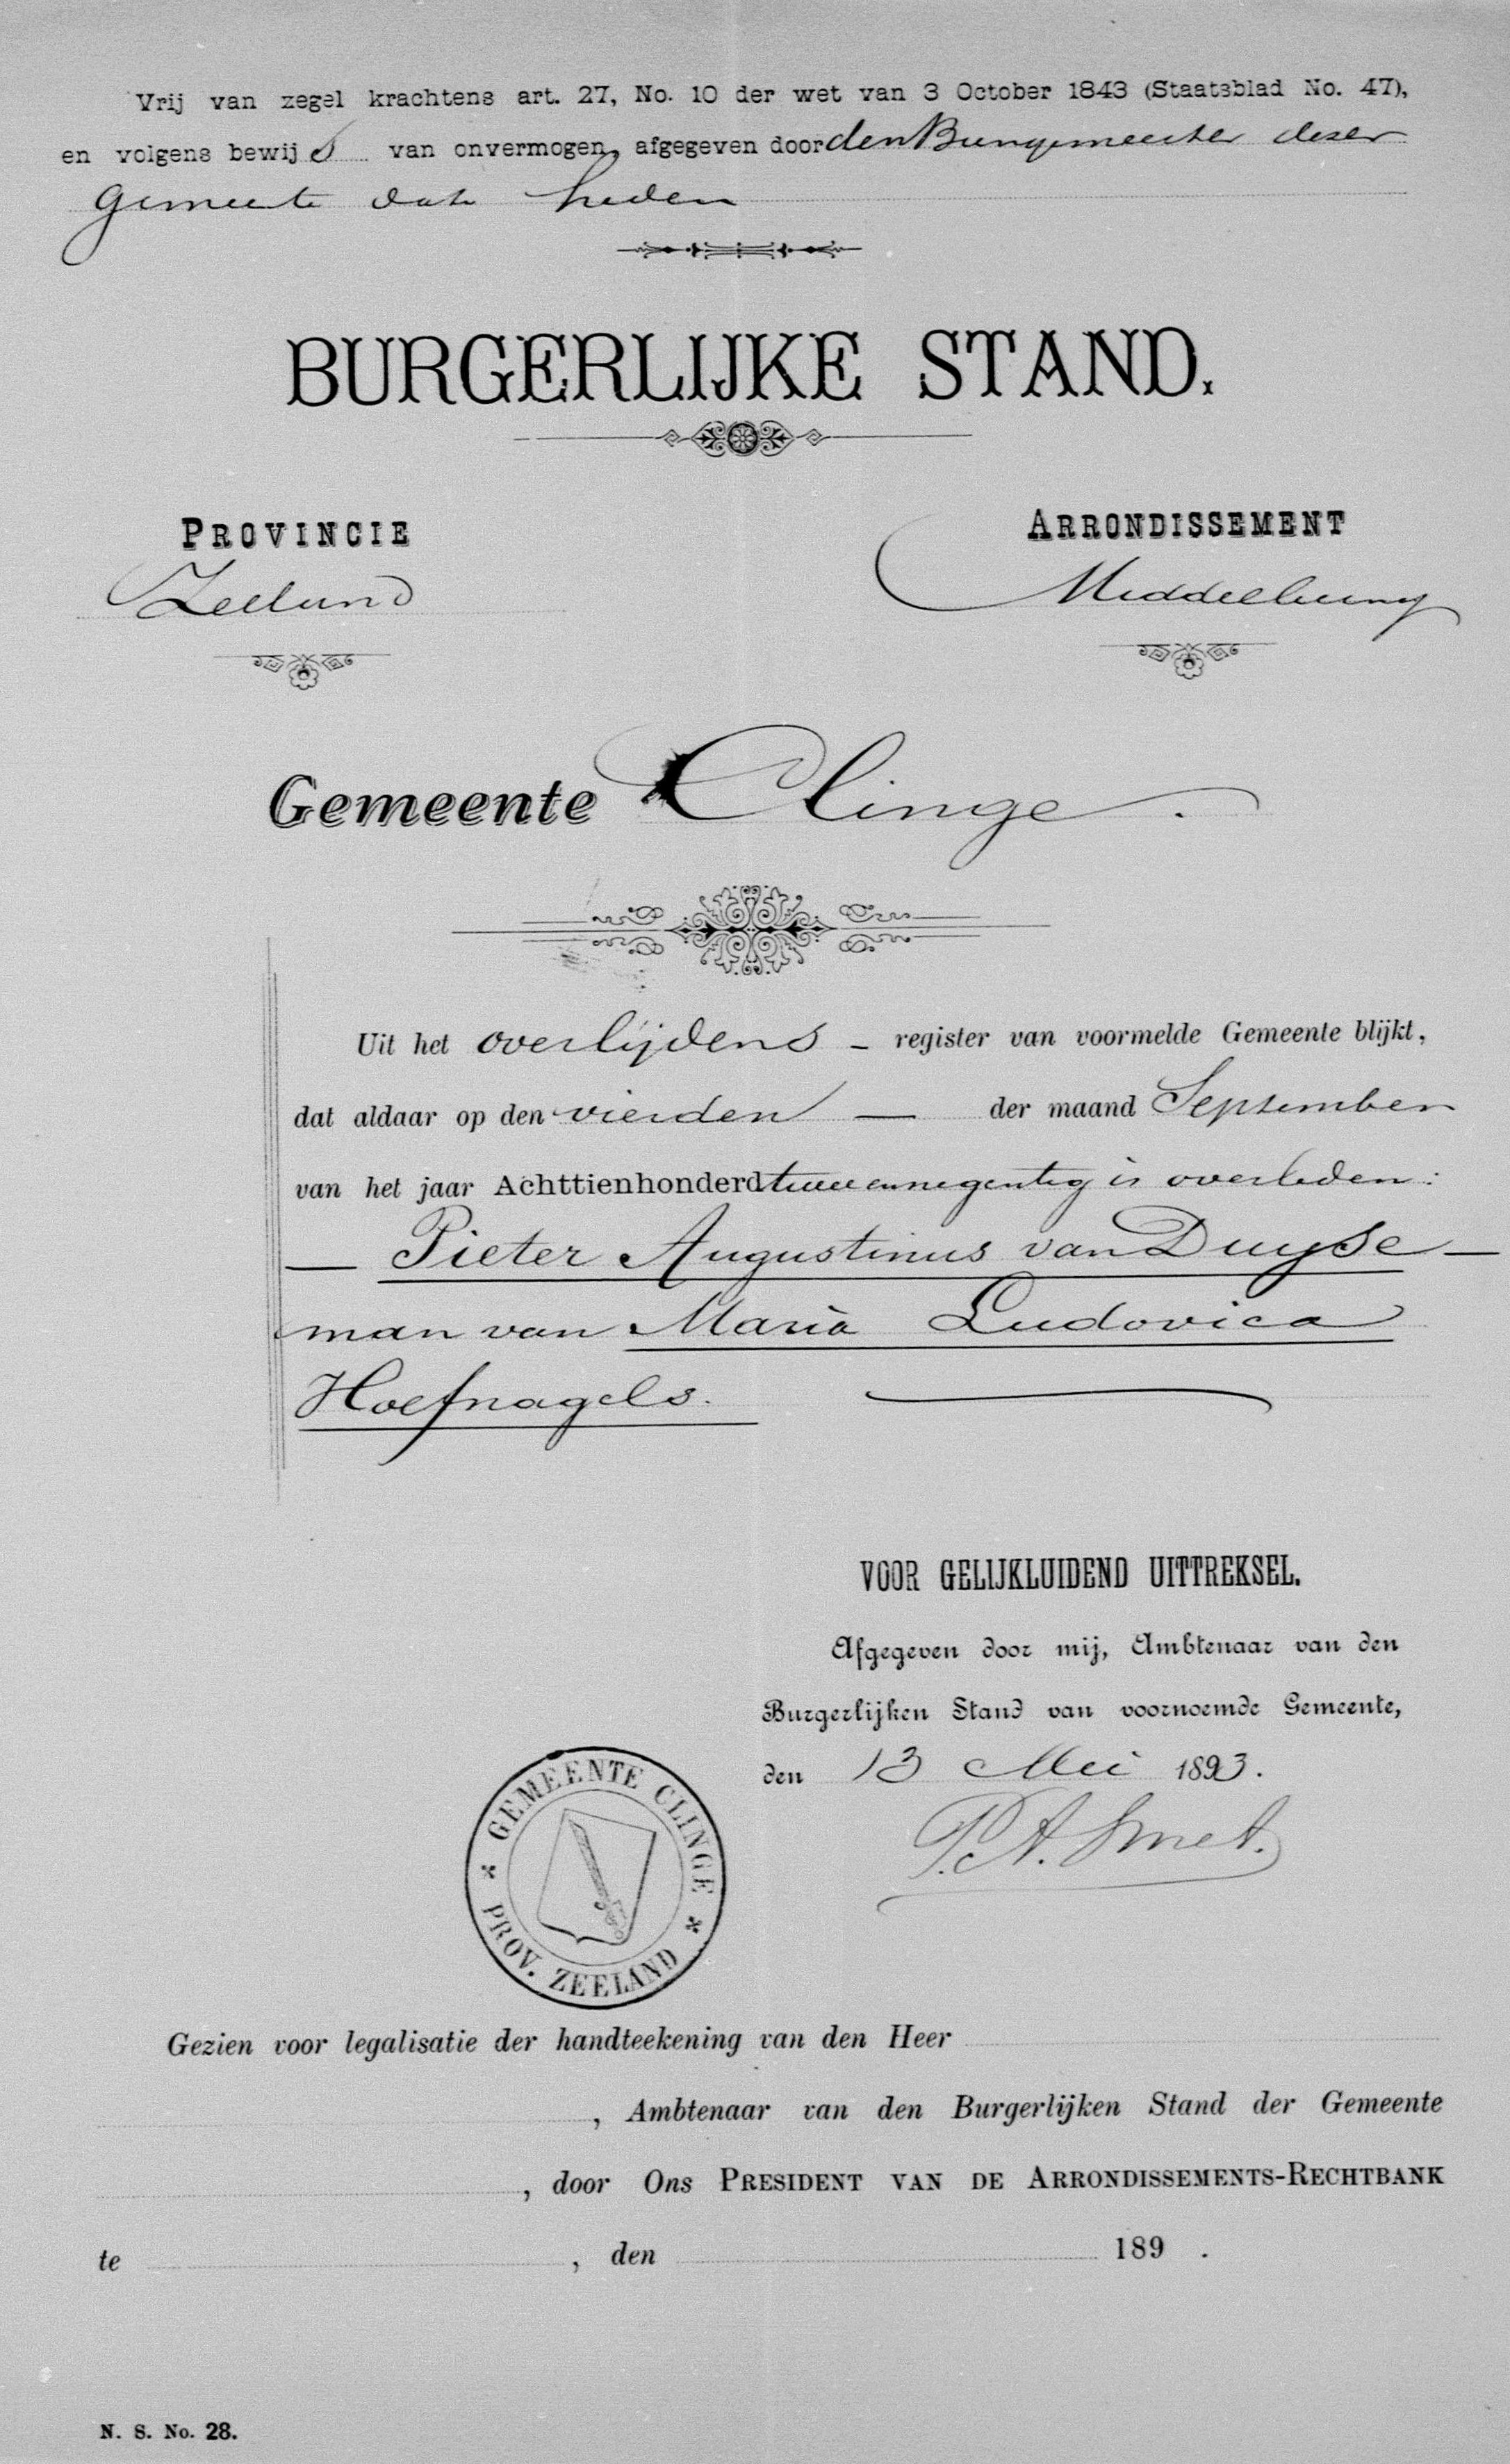 Vrij van zegel krachtens art. 27, No. 10 der wet van 3 October 1843 (Staatsblad No. 47),
en volgens bewijs van onvermogen, afgegeven door den Burgemeester dezer
Gemeente dato heden
BURGERLIJKE STAND.
PROVINCIE
Zeeland
ARRONDISSEMENT
Middelburg
Gemeente Clinge.
Uit het overlijdens - register van voormelde Gemeente blijkt,
dat aldaar op den vierden — der maand September
van het jaar Achttienhonderd twee en negentig is overleden:
— Pieter Augustinus van Duyse —
man van Maria Ludovica
Hoefnagels.
VOOR GELIJKLUIDEND UITTREKSEL.
Afgegeven door mij, Ambtenaar van den
Burgerlijken Stand van voornoemde Gemeente,
den 13 Mei 1893.
P. A. Smet.
GEMEENTE CLINGE
PROV. ZEELAND
Gezien voor legalisatie der handteekening van den Heer
, Ambtenaar van den Burgerlijken Stand der Gemeente
, door Ons PRESIDENT VAN DE ARRONDISSEMENTS-RECHTBANK
te , den 189 .
N. S. No. 28.